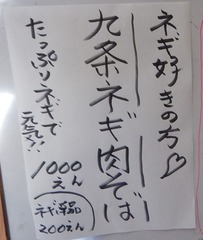 ネギ好きの方♡
九条ネギ肉そば
たっぷりネギで
元気!!
1000
えん
ネギ単品
200えん